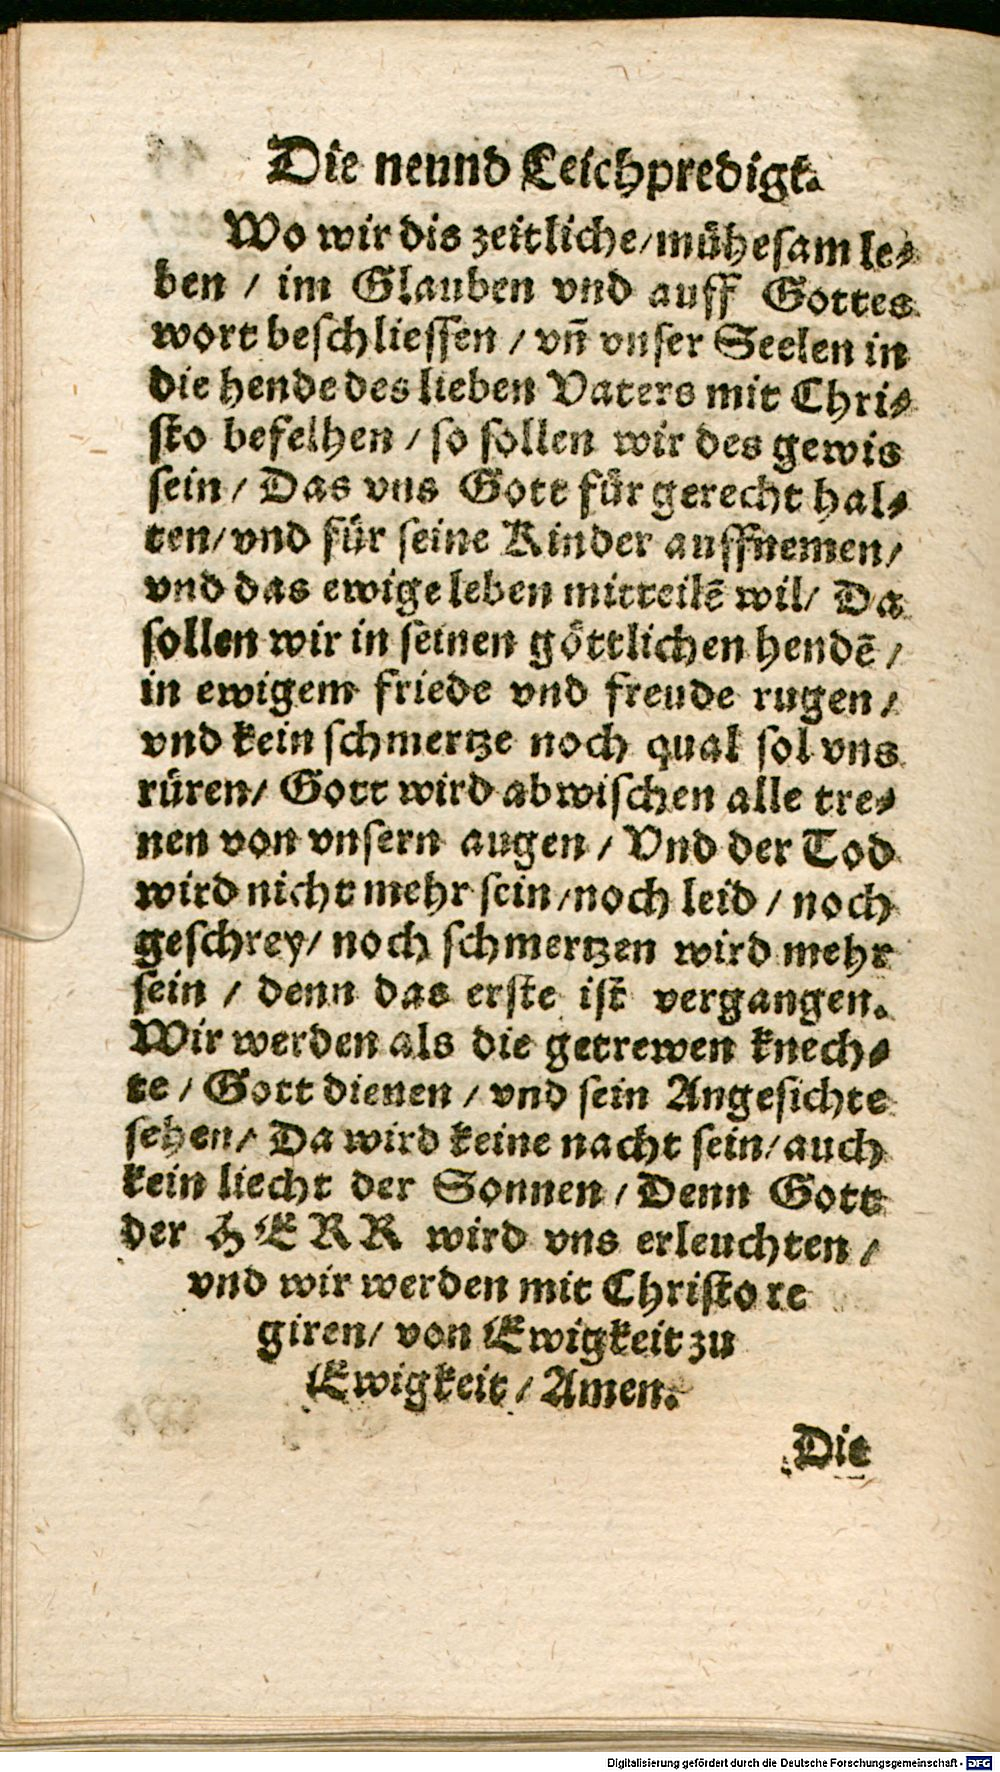 Die neund Leichpredigt.
Wo wir dis zeitliche/mühesam le⸗
ben / im Glauben vnd auff Gottes
wort beschliessen / vñ vnser Seelen in
die hende des lieben Vaters mit Chri⸗
sto befelhen / so sollen wir des gewis
sein / Das vns Gott für gerecht hal⸗
ten/ vnd für seine Kinder auffnemen/
vnd das ewige leben mitteilẽ wil/ Da
sollen wir in seinen göttlichen hendẽ /
in ewigem friede vnd freude rugen /
vnd kein schmertze noch qual sol vns
rüren/ Gott wird abwischen alle tre⸗
nen von vnsern augen / Vnd der Tod
wird nicht mehr sein/noch leid / noch
geschrey/ noch schmertzen wird mehr
sein / denn das erste ist vergangen.
Wir werden als die getrewen knech⸗
te / Gott dienen / vnd sein Angesichte
sehen/ Da wird keine nacht sein/ auch
kein liecht der Sonnen / Denn Gott
der HERR wird vns erleuchten /
vnd wir werden mit Christo re
giren/ von Ewigkeit zu
Ewigkeit / Amen.
Die
Digitalisierung gefördert durch die Deutsche Forschungsgemeinschaft - DFG